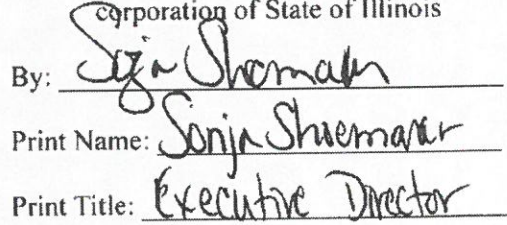 corporation of State of Illinois
By: Sonja Shoemaker
Print Name: Sonja Shoemaker
Print Title: Executive Director